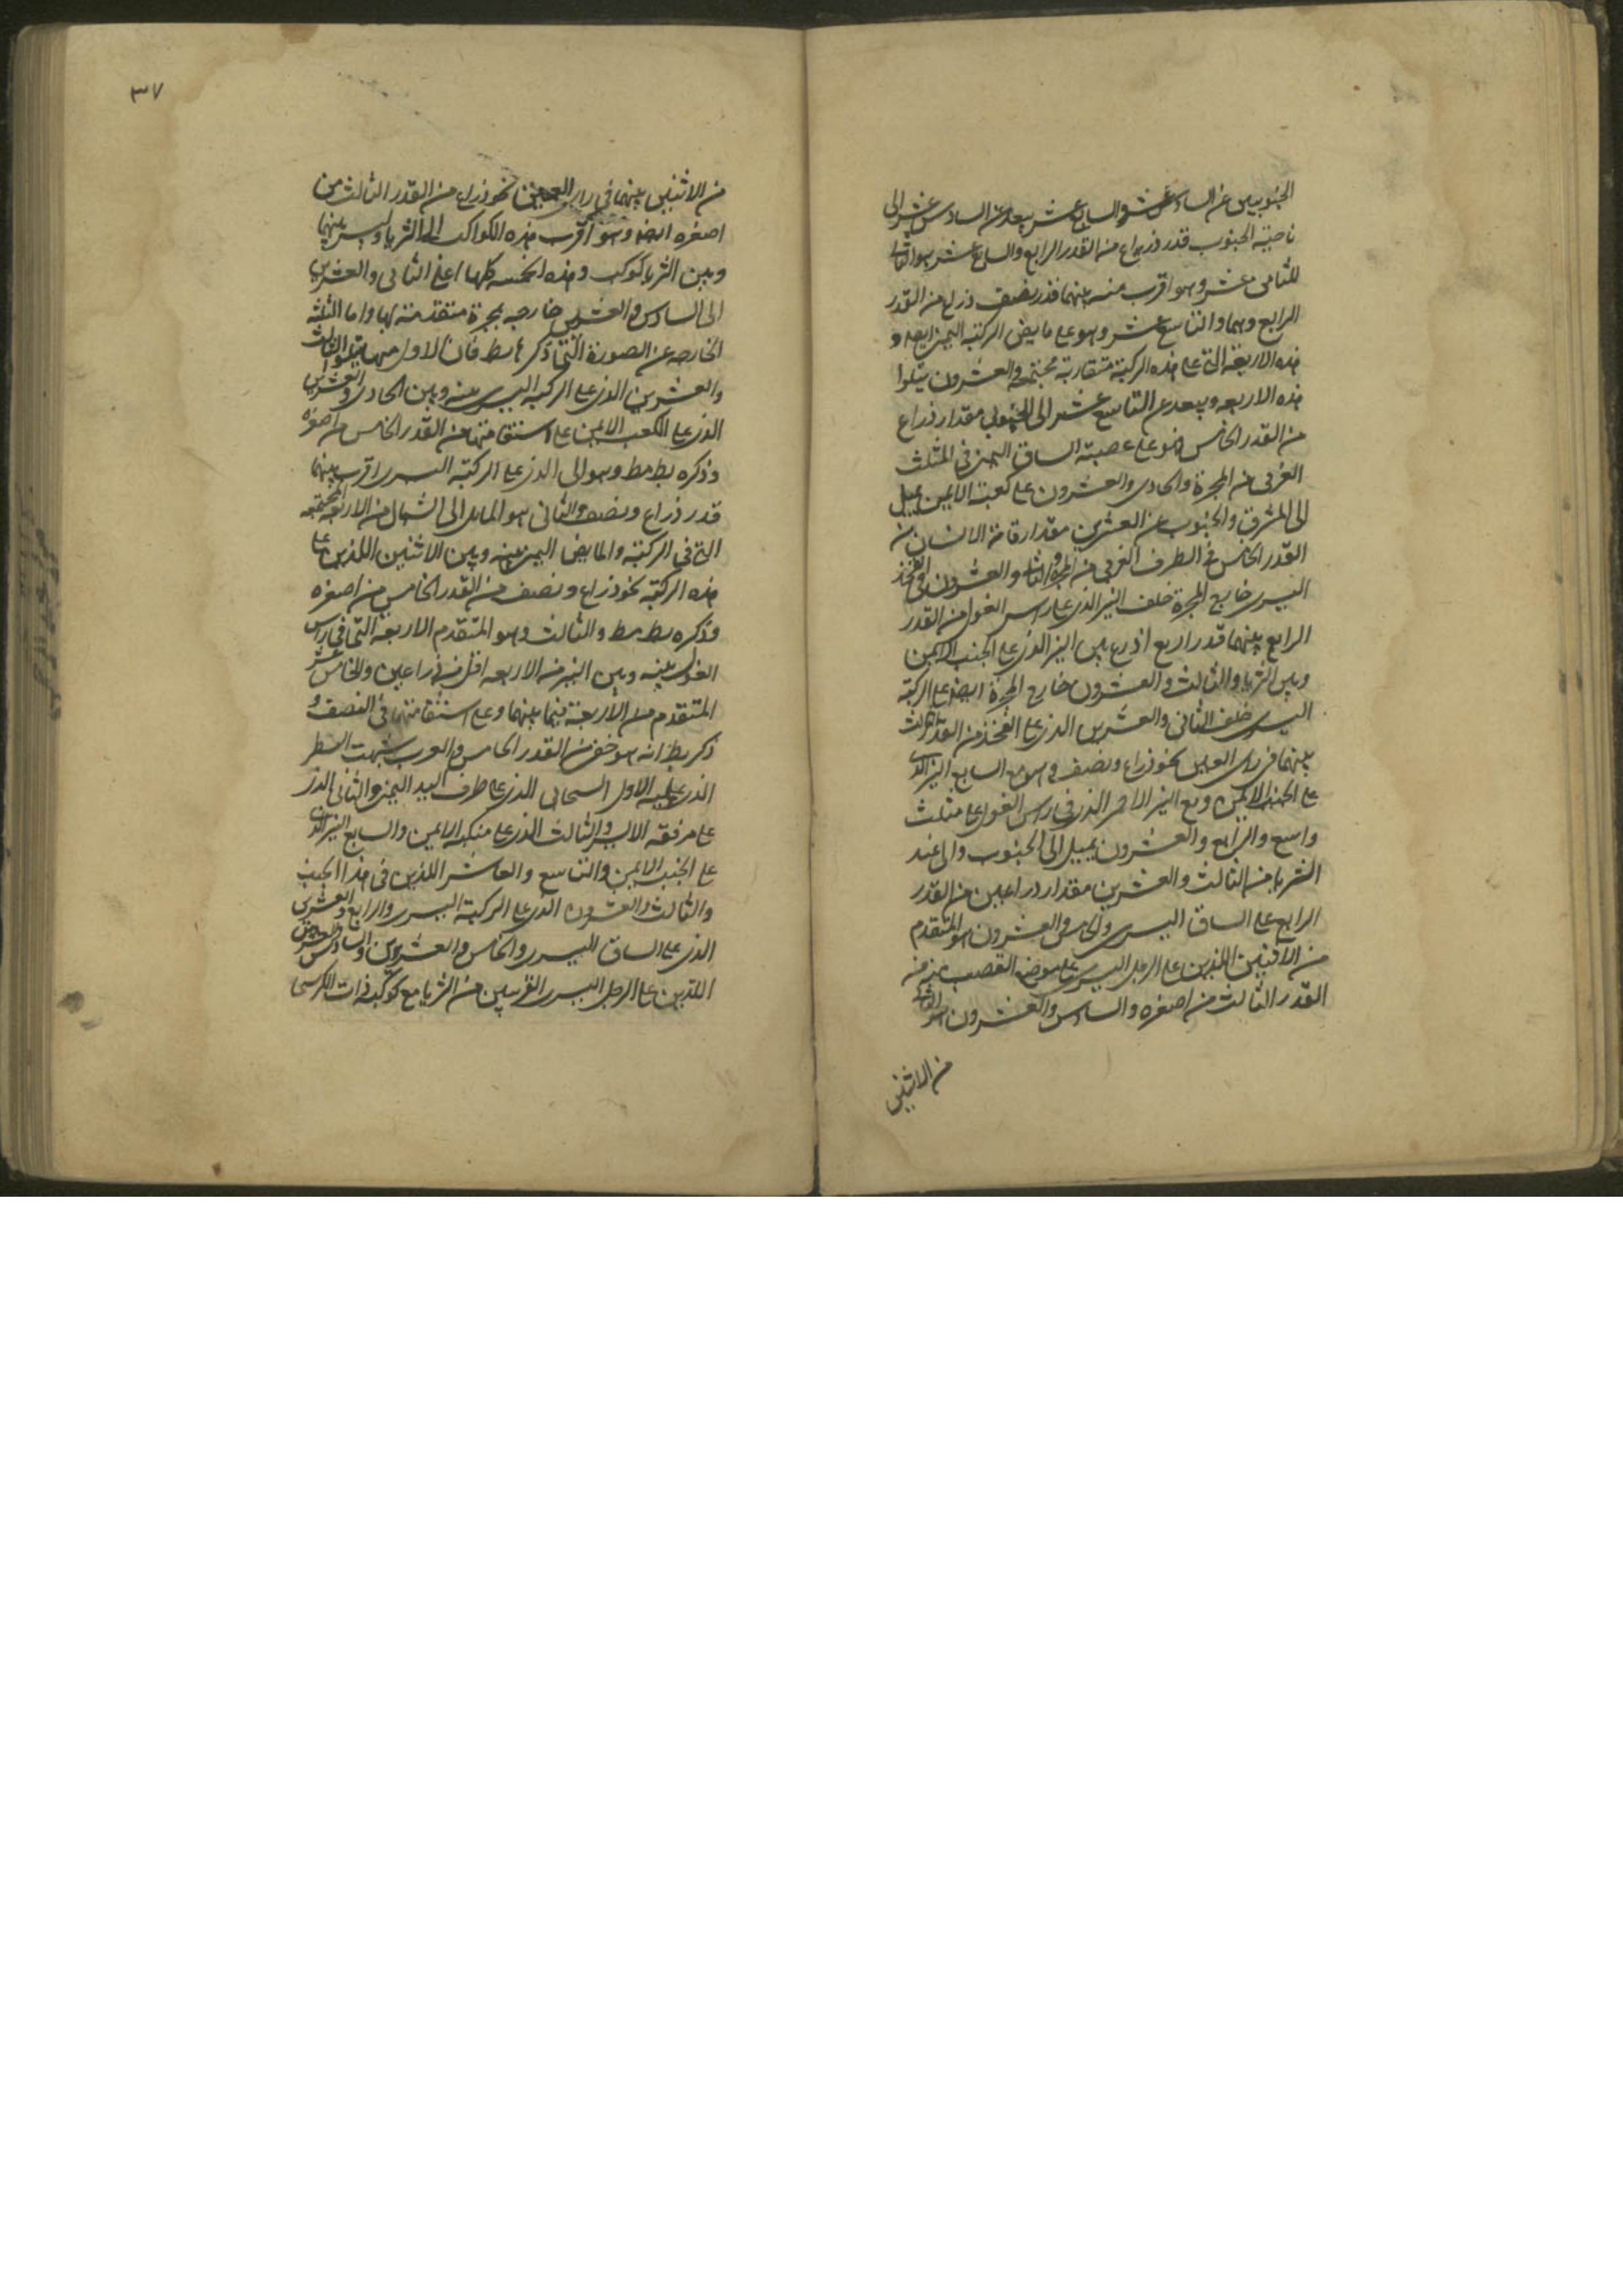 الجنوبيين عن السادس عشر والسابع عشر يبعد عن السادس عشر الى
ناحية الجنوب قدر ذراع من القدر الرابع والسابع عشر هو التالى
للثامن عشر وهو اقرب منه بينهما قدر نصف ذراع من القدر
الرابع وهما والتاسع عشر وهو على مابض الركبة اليمنى ايضا و
هذه الاربعة التى على هذه الركبة متقاربة مجتمعة والعشرون يتلوا
هذه الاربعه ويبعد عن التاسع عشر الى الجنوب مقدار ذراع
من القدر الخامس وهو على عصبة الساق اليمنى فى المثلث
الغربى من المجرة والحادى والعشرون على كعبه الايمن يميل
الى المشرق والجنوب عن العشرين مقدار قامة الانسان من
القدر الخامس فى الطرف الغربى من المجرة والثانى والعشرون فى الفخذ
اليسرى خارج المجرة خلف النير الذى على راس الغول من القدر
الرابع بينهما قدر اربع اذرع بين النير الذى على الجنب الايمن
وبين الثريا والثالث والعشرون خارج المجرة ايضا على الركبة
اليسرى خلف الثانى والعشرين الذى على الفخذ من القدر الثالث
بينهما فى راى العين نحو ذراع ونصف وهو مع السابع النير الذى
على الجنب الايمن ومع النير الاحمر الذى فى راس الغول على مثلث
واسع والرابع والعشرون يميل الى الجنوب والى عند
الثريا من الثالث والعشرين مقدار ذراعين من القدر
الرابع على الساق اليسرى والخامس والعشرون هو المتقدم
من الاثنين اللذين على الرجل اليسرى على موضع القصب منه من
القدر الثالث من اصغره والسادس والعشرون هو التالى
من الاثنين
٣٧
من الاثنين بينهما فى راى العين نحو ذراع من القدر الثالث من
اصغره ايضا وهو اقرب هذه الكواكب الى الثريا وليس بينهما
وبين الثريا كوكب وهذه الخمسه كلها اعنى الثانى والعشرين
الى السادس والعشرين خارجه عن المجرة متقدمة لها واما الثلثه
الخارجه عن الصورة التى ذكرها بط فان الاول منها يتلوا الثالث
والعشرين الذى على الركبه اليسرى بينه وبين الحادى والعشرين
الذى على الكعب الايمن على استقامتهما من القدر الخامس من اصغره
وذكره بط مط وهو الى الذى على الركبة اليسرى اقرب بينهما
قدر ذراع ونصف والثانى هو المائل الى الشمال من الاربعه المجتمعه
التى فى الركبة والمابض اليمنى بينه وبين الاثنين اللذين على
هذه الركبة نحو ذراع ونصف من القدر الخامس من اصغره
وذكره بط مط والثالث وهو المتقدم الاربعه التى فى راس
الغول بينه وبين النير من الاربعه اقل من ذراعين والخامس عشر
المتقدم من الاربعة فيما بينهما وعلى استقامتهما فى النصف و
ذكر بط انه هو خفى من القدر الخامس والعرب شبهت السطر
الذى عليه الاول السحابى الذى على طرف اليد اليمنى والثانى الذى
على مرفقه الايسر والثالث الذى على منكبه الايمن والسابع النير الذى
على الجنب الايمن والتاسع والعاشر اللذين فى هذا الجنب
والثالث والعشرون الذى على الركبة اليسرى والرابع والعشرين
الذى على الساق اليسرى والخامس والعشرين والسادس والعشرين
اللذين على الرجل اليسرى القريبين من الثريا مع كوكبة ذات الكرسى